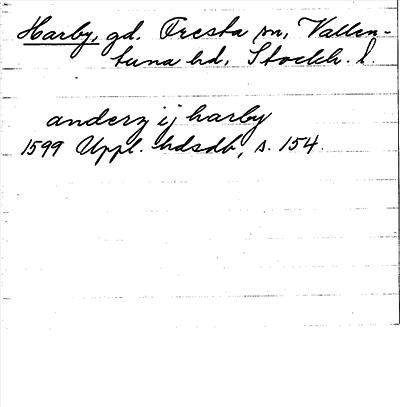 Harby, gd. Fresta sn, Vallen-
tuna hd, Stockh. l.
anderz ij harby
1599 Uppl. hdsdb, s. 154.